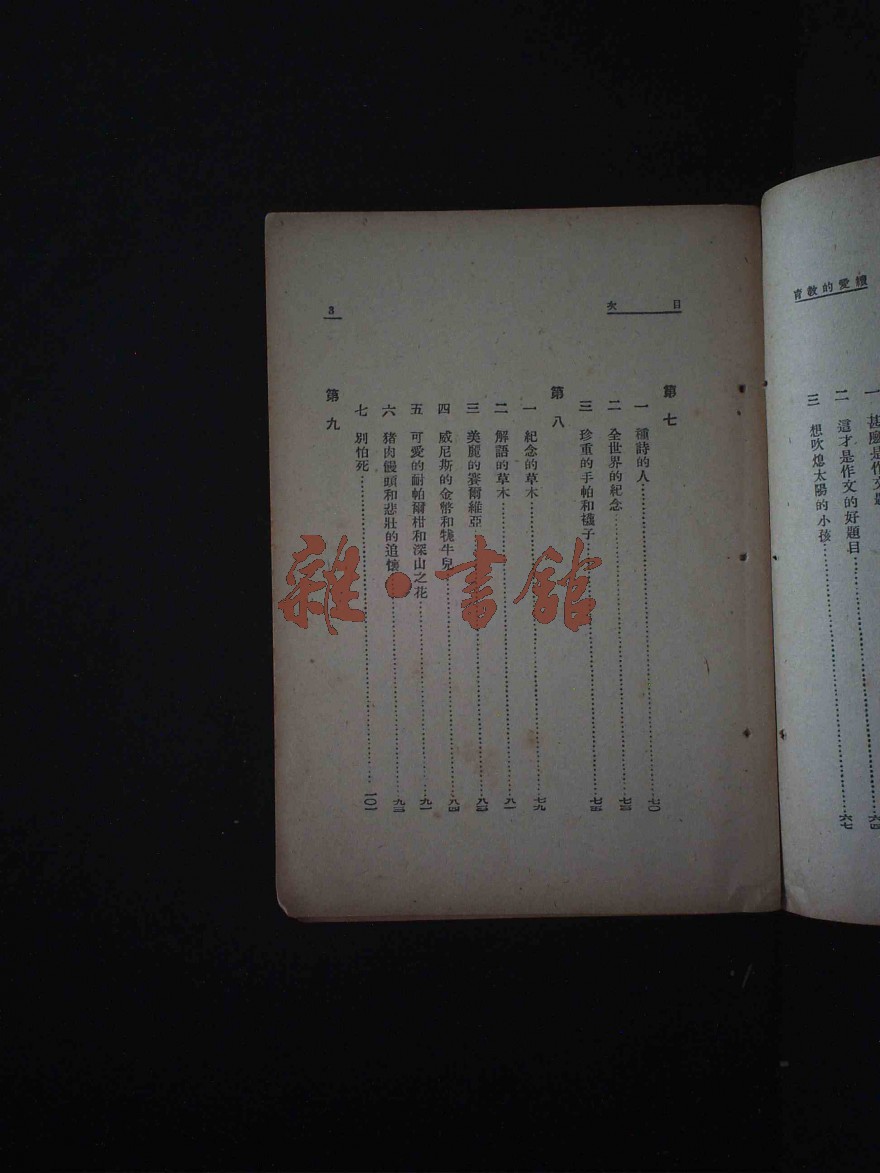 續愛的教育
一 甚麼是作文題
二 這才是作文的好題目……六七
三 想吹熄太陽的小孩
目次
第七
一 種詩的人……七〇
二 全世界的紀念……七三
三 珍重的手帕和襪子……七五
第八
一 紀念的草木……七九
二 解語的草木……八一
三 美麗的賽爾維亞……八三
四 威尼斯的金幣和犢牛兒……八四
五 可愛的耐帕爾柑和深山之花……九一
六 豬肉饅頭和悲壯的追懷……九三
七 別怕死……一〇一
第九
3
雜·書館